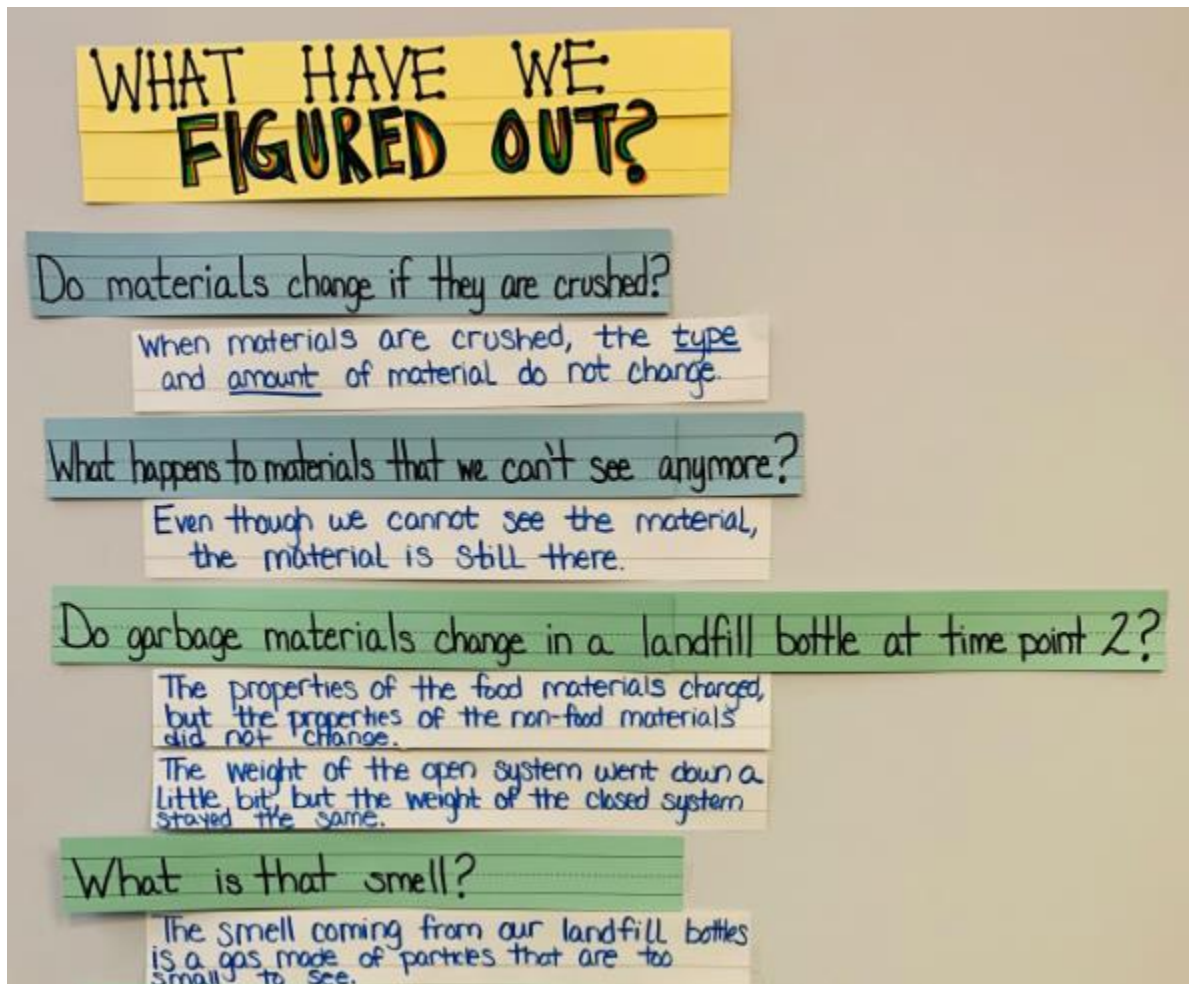 WHAT HAVE WE
FIGURED OUT?
Do materials change if they are crushed?
When materials are crushed, the type
and amount of material do not change.
What happens to materials that we can't see anymore?
Even though we cannot see the material,
the material is still there.
Do garbage materials change in a landfill bottle at time point 2?
The properties of the food materials changed,
but the properties of the non-food materials
did not change.
The weight of the open system went down a
little bit, but the weight of the closed system
stayed the same.
What is that smell?
The smell coming from our landfill bottles
is a gas made of particles that are too
small to see.